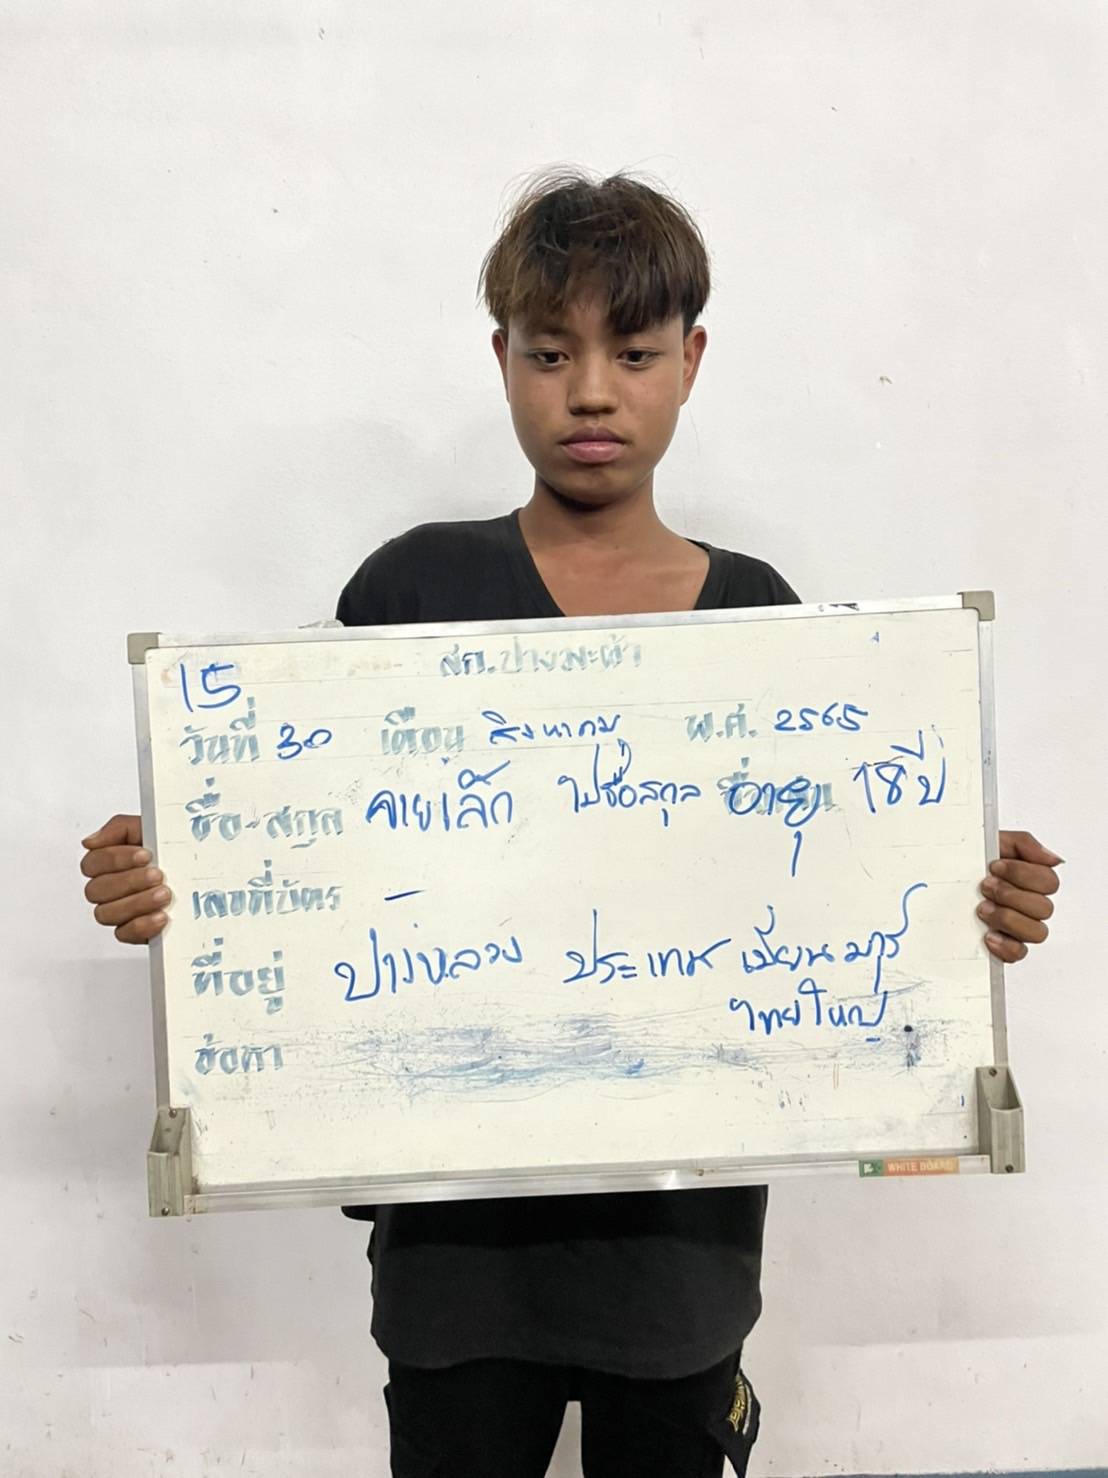 สภ.ปางมะผ้า
15
วันที่ 30 เดือน สิงหาคม พ.ศ. 2565
ชื่อ-สกุล จายเล็ก ไม่มีชื่อสกุล อายุ 18 ปี
เลขที่บัตร -
ที่อยู่ ประเทศ เมียนมาร์
ไทยใหญ่
ข้อหา
WHITE BOARD